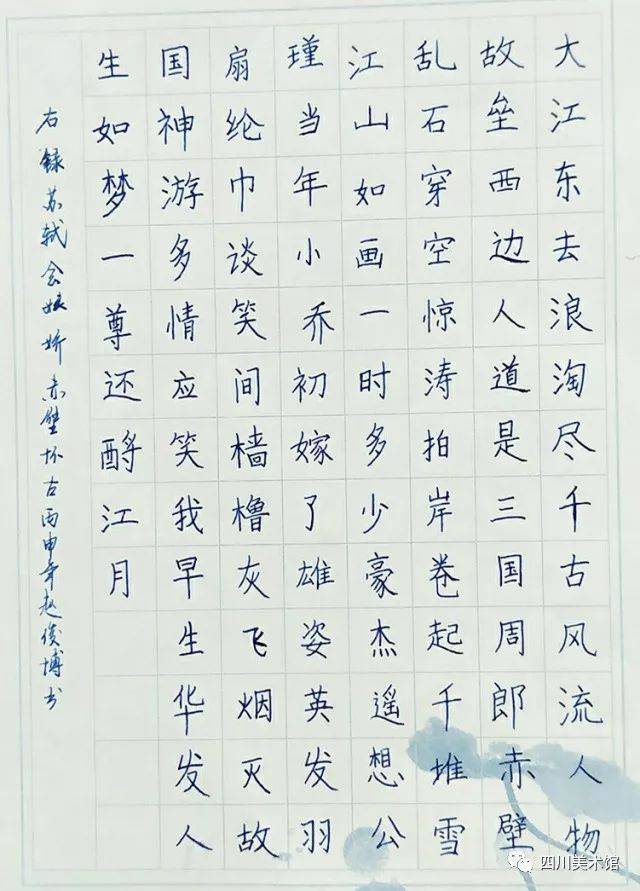 大江东去浪淘尽千古风流人物
故垒西边人道是三国周郎赤壁
乱石穿空惊涛拍岸卷起千堆雪
江山如画一时多少豪杰遥想公
瑾当年小乔初嫁了雄姿英发羽
扇纶巾谈笑间樯橹灰飞烟灭故
国神游多情应笑我早生华发人
生如梦一尊还酹江月
右録苏轼念奴娇赤壁怀古丙申年赵俊博书
四川美术馆